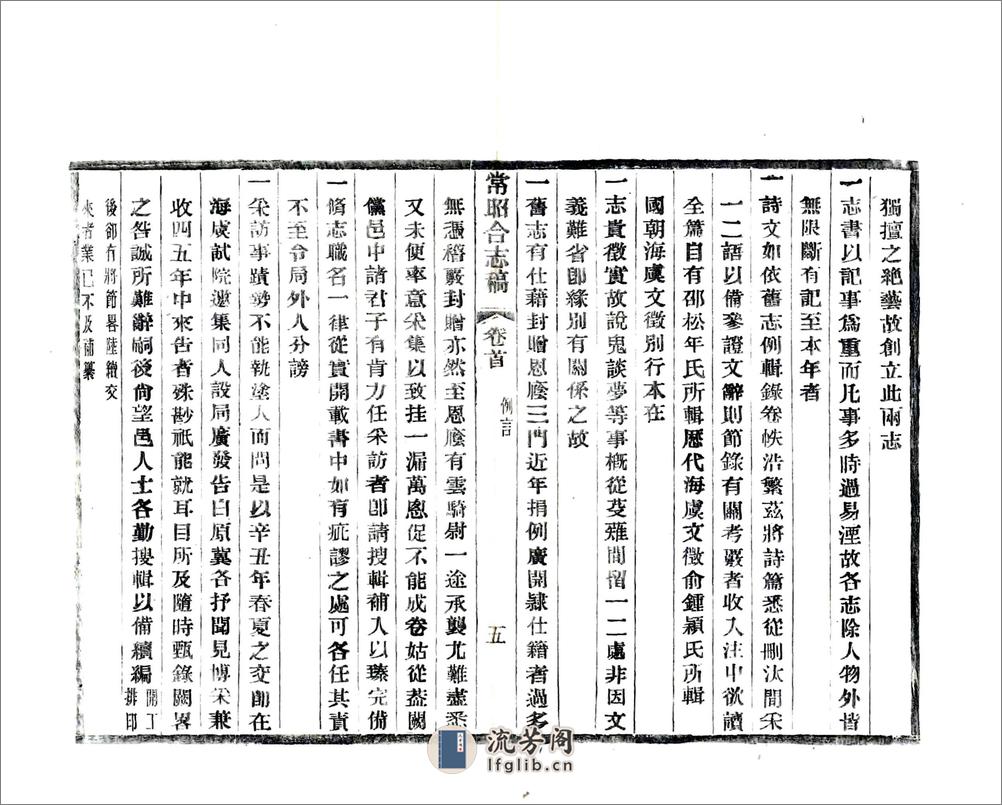 獨擅之絕藝故創立此兩志
一志書以記事爲重而凡事多時過易湮故各志除人物外皆
無限斷有記至本年者
一詩文如依舊志例輯錄卷帙浩繁茲將詩篇悉從刪汰間采
一二語以備參證文辭則節錄有關考覈者收入注中欲讀
全篇自有邵松年氏所輯歷代海虞文徵俞鍾潁氏所輯
國朝海虞文徵別行本在
一志貴徵實故說鬼談夢等事概從芟薙間留一二處非因文
義難省卽緣別有關係之故
一舊志有仕藉封贈恩廕三門近年捐例廣開隸仕籍者過多
常昭合志稿 卷首 例言 五
無憑稽覈封贈亦然至恩廕有雲騎尉一途承襲尤難盡悉
又未便率意采集以致挂一漏萬恩促不能成卷姑從蓋闕
儻邑中諸君子有肯力任采訪者卽請搜輯補入以臻完備
一脩志職名一律從實開載書中如有疵謬之處可各任其責
不至令局外人分謗
一采訪事蹟勢不能執塗人而問是以辛丑年春夏之交卽在
海虞試院邀集同人設局廣發告白原冀各抒聞見博采兼
收四五年中來告者殊尠祇能就耳目所及隨時甄錄闕畧
之咎誠所難辭嗣後尙望邑人士各勤搜輯以備續編開工排印
後卻有將節畧陸續交
來者業已不及補纂
流芳阁
lfglib.cn